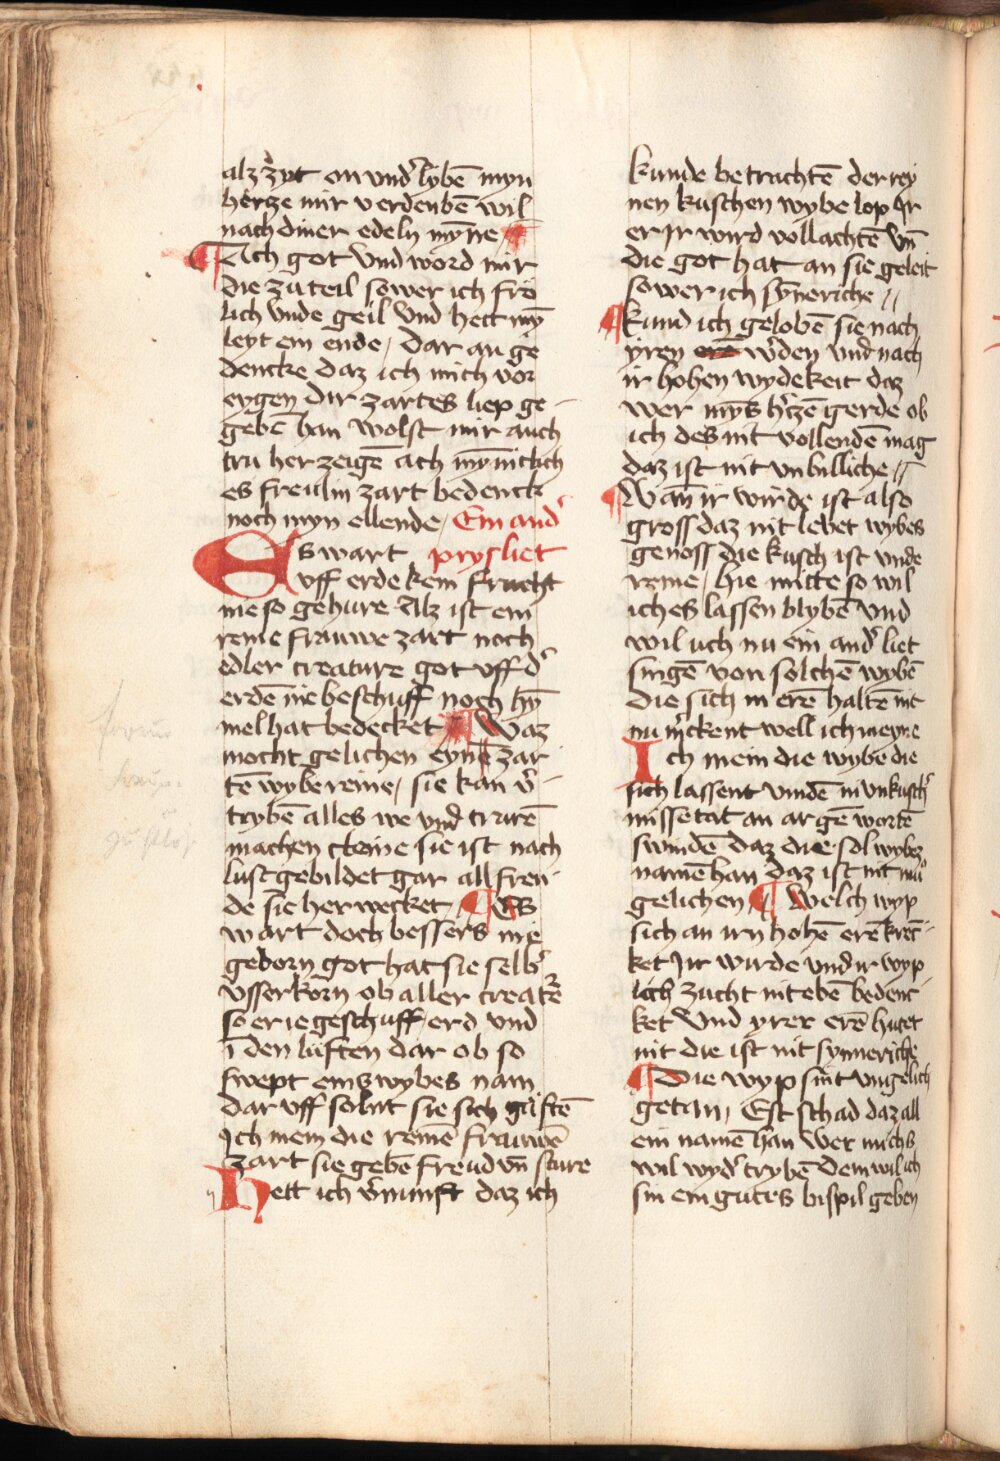 alzzÿt on vnd᷎lybē myn
hertze mir verdenbē wil
nach diner edeln mÿne
Ach got vnd word mir
die zu teil so wer ich frö
lich vnde geil vnd hett mȳ
leyt ein ende / dar an ge
dencke daz ich mich vor
eygen dir zartes liep ge-
gebē han wolst mir auch
tru her zeigē ach mȳnitlich
es freulin zart bedenck
noch myn ellende / Ein and᷎
Es wart prys liet
vff erde kein frucht
nie so gehure Alz ist ein
reine frauwe zart noch
edler creature got vff d᷎
erdē nie beschuff noch hȳ
mel hat bedecket Waz
mocht gelichen eynē zar
tē wybe reine / sie kan v᷎-
trybē alles we vnd trurē
machen cleine sie ist nach
lust gebildet gar all freu-
de sie herwecket / Es
wart doch bessers nie
geborn got hat sie selb᷎
vsserkorn ob aller creat᷎e
so er ie geschuff / erd vnd
ī den lüften dar ob so
swept eins wybes nam
dar vff solnt sie sich güftē
Ich mein die reinē frauwē
zart sie gebē freud vn̄ sture
Hett ich v᷎nunft daz ich
kunde betrachtē der rey
nen kuschen wybe lop Ir
er Ir wird vollachtē vn̄
die got hat an sie geleit
so wer ich sȳneriche //
kund ich gelobē sie nach
yren w᷎den vnd nach
ir hohen wydekeit daz
wer mȳs h᷎tzē gerde ob
ich des nit vollendē mag
daz ist nit vnbilliche //
Wān ir wirde ist also
gross daz nit lebet wybes
genoss die kusch ist vnde
reine / hie mitte so wil
ich es lassen blybē vnd
wil uch nu ein and᷎ liet
singē von solchē wybē
die sich in erē haltē nit
nu m᷎ckent well ich meyne
Ich mein die wybe die
sich lassent vindē in vnkusch᷎
missetat an argē wortē
swindē daz die sol wybes
namē han daz ist nit mu᷎
gelichen / Welch wyp
sich an irn hohē erē krēc-
ket Ir wirde vnd ir wyp
lich zucht nit ebē bedenc
ket Vnd yrer erē hutet
nit die ist nit synneriche
Die wyp sint vngelich
getan / Est schad daz all
ein namē hān Wer michs
wil wyd᷎ trybē dem wil ich
sin ein gutes bispil geben